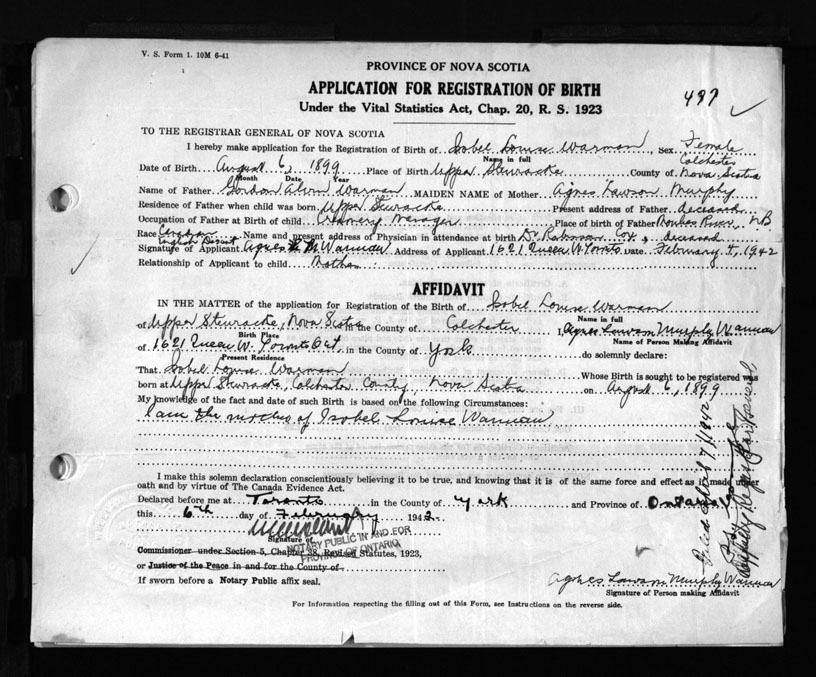 V. S. Form 1. 10M 6-41
PROVINCE OF NOVA SCOTIA
APPLICATION FOR REGISTRATION OF BIRTH
Under the Vital Statistics Act, Chap. 20, R. S. 1923
497
TO THE REGISTRAR GENERAL OF NOVA SCOTIA
I hereby make application for the Registration of Birth of Isobel Louise Warman, Sex Female
Name in full
Colchester
Date of Birth August 6, 1899 Place of Birth Upper Stewiacke County of Nova Scotia
Month Date Year
Name of Father Gordon Alvin Warman MAIDEN NAME of Mother Agnes Lawson Murphy
Residence of Father when child was born Upper Stewiacke Present address of Father deceased
Occupation of Father at Birth of child Creamery Manager Place of birth of Father River N.B.
Race Canadian Name and present address of Physician in attendance at birth Dr Robinson Cox, deceased
English Descent
Signature of Applicant Agnes L M Warman Address of Applicant 1621 Queen W. Toronto Date February 5, 1942
Relationship of Applicant to child Mother
AFFIDAVIT
IN THE MATTER of the application for Registration of the Birth of Isobel Louise Warman
Name in full
of Upper Stewiacke, Nova Scotia in the County of Colchester I, Agnes Lawson Murphy Warman
Birth Place Name of Person Making Affidavit
of 1621 Queen W. Toronto Ont. in the County of York do solemnly declare:
Present Residence
That Isobel Louise Warman Whose Birth is sought to be registered was
born at Upper Stewiacke, Colchester County, Nova Scotia on August 6, 1899
My knowledge of the fact and date of such Birth is based on the following Circumstances:
I am the mother of Isobel Louise Warman
I make this solemn declaration conscientiously believing it to be true, and knowing that it is of the same force and effect as if made under
oath and by virtue of The Canada Evidence Act.
Declared before me at Toronto in the County of York and Province of Ontario
this 6th day of February 1942
Signature of
NOTARY PUBLIC IN AND FOR
PROVINCE OF ONTARIO
Commissioner under Section 5, Chapter 38, Revised Statutes, 1923,
or Justice of the Peace in and for the County of
If sworn before a Notary Public affix seal.
Agnes Lawson Murphy Warman
Signature of Person making Affidavit
For Information respecting the filling out of this Form, see Instructions on the reverse side.
Filed April 7/1942
Deputy Registrar General